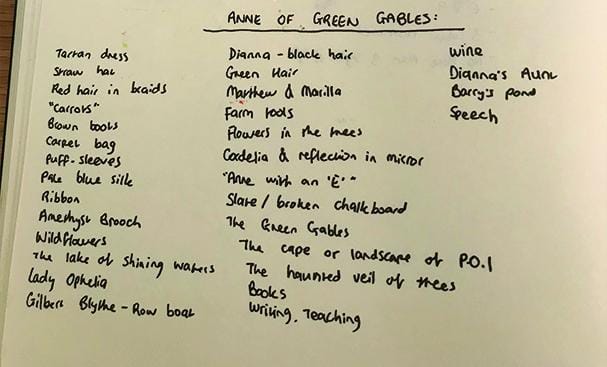 ANNE OF GREEN GABLES:
Tartan dress
Straw hat
Red hair in braids
"Carrots"
Brown boots
Carpet bag
Puff-sleeves
Pale blue silk
Ribbon
Amethyst Brooch
Wildflowers
The lake of shining waters
Lady Ophelia
Gilbert Blythe - Row boat
Dianna - black hair
Green Hair
Matthew & Marilla
Farm tools
Flowers in the trees
Cordelia & reflection in mirror
"Anne with an 'E'"
Slate / broken chalkboard
The Green Gables
The cape or landscape of P.O.I
The haunted veil of trees
Books
Writing, Teaching
Wine
Dianna's Aunt
Barry's pond
Speech